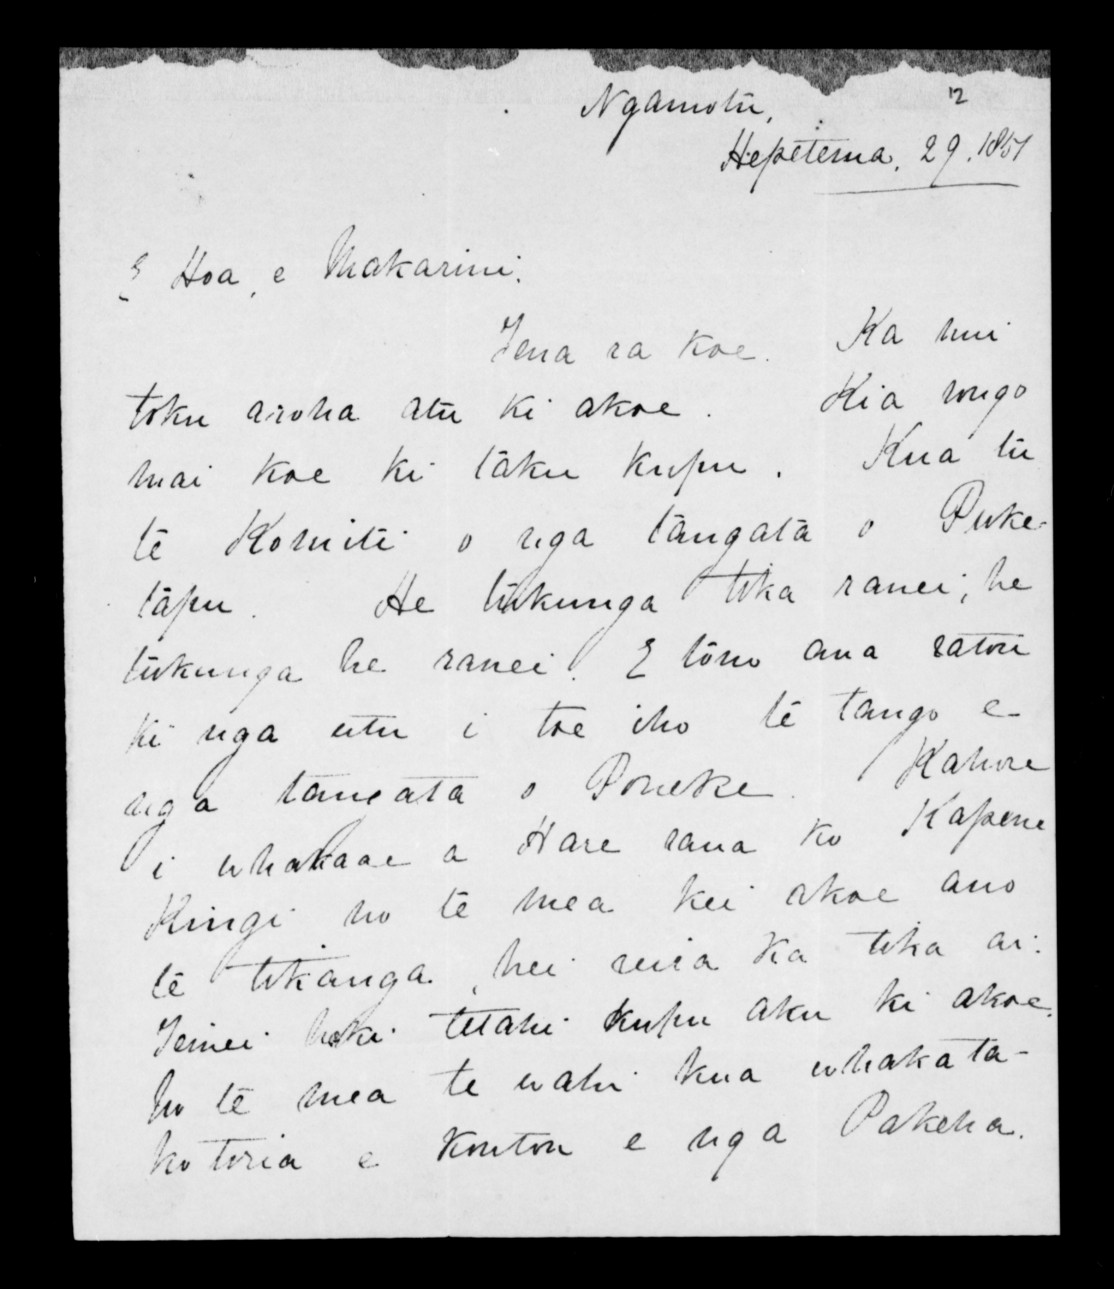 12
Ngamotu,
Hepetema. 29. 1851
E Hoa, e Makarini.
Tena ra koe. Ka nui
toku aroha atu ki akoe. Kia rongo
mai koe ki taku kupu. Kua tu
te Komiti o nga tangata o Puke-
tapu. He tukunga tika ranei, he
tukunga he ranei. E tono ana ratou
ki nga utu i toe iho te tango e
nga tangata o Poneke. Kahore
i whakaae a Hare raua ko Kapene
Kingi no te mea kei akoe ano
te tikanga, hei reira ka tika ai.
Tenei hoki tetahi kupu aku ki akoe.
No te mea te wahi kua whakata-
kotoria e koutou e nga Pakeha.